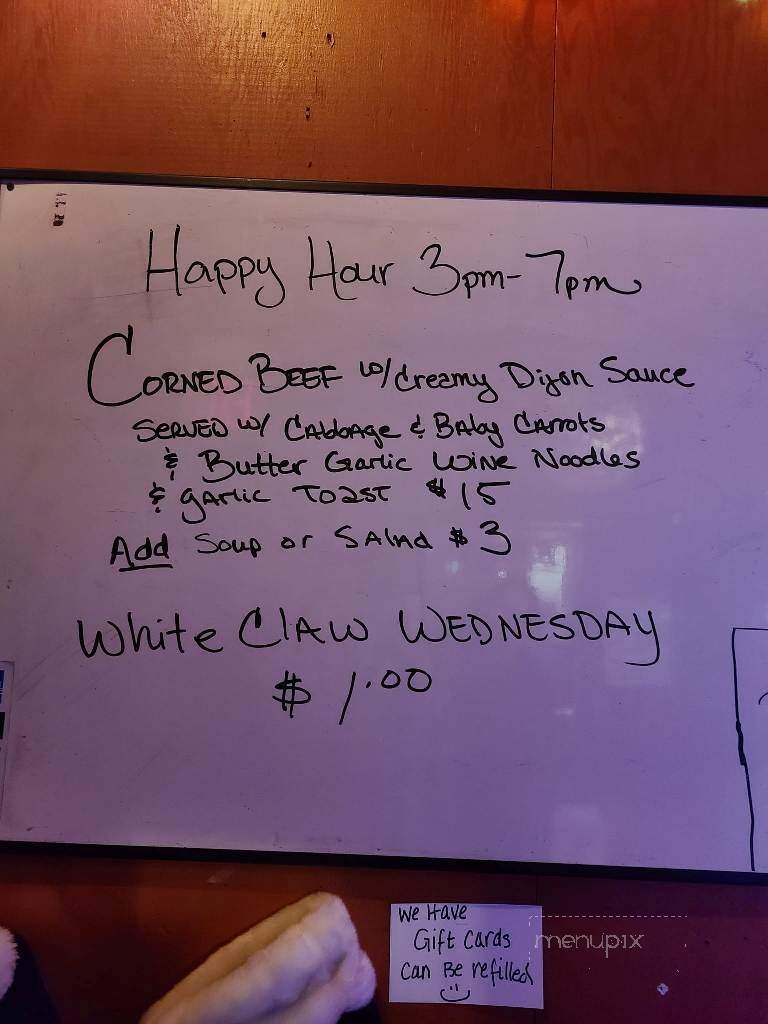 Happy Hour 3pm-7pm
CORNED BEEF w/ Creamy Dijon Sauce
SERVED w/ CAbbAge & BAby CArrots
& Butter Garlic Wine Noodles
& gArlic TOAST $15
Add Soup or SAlad $3
White ClAW WEDNESDAY
$1.00
We Have
Gift Cards
Can Be refilled
menupix